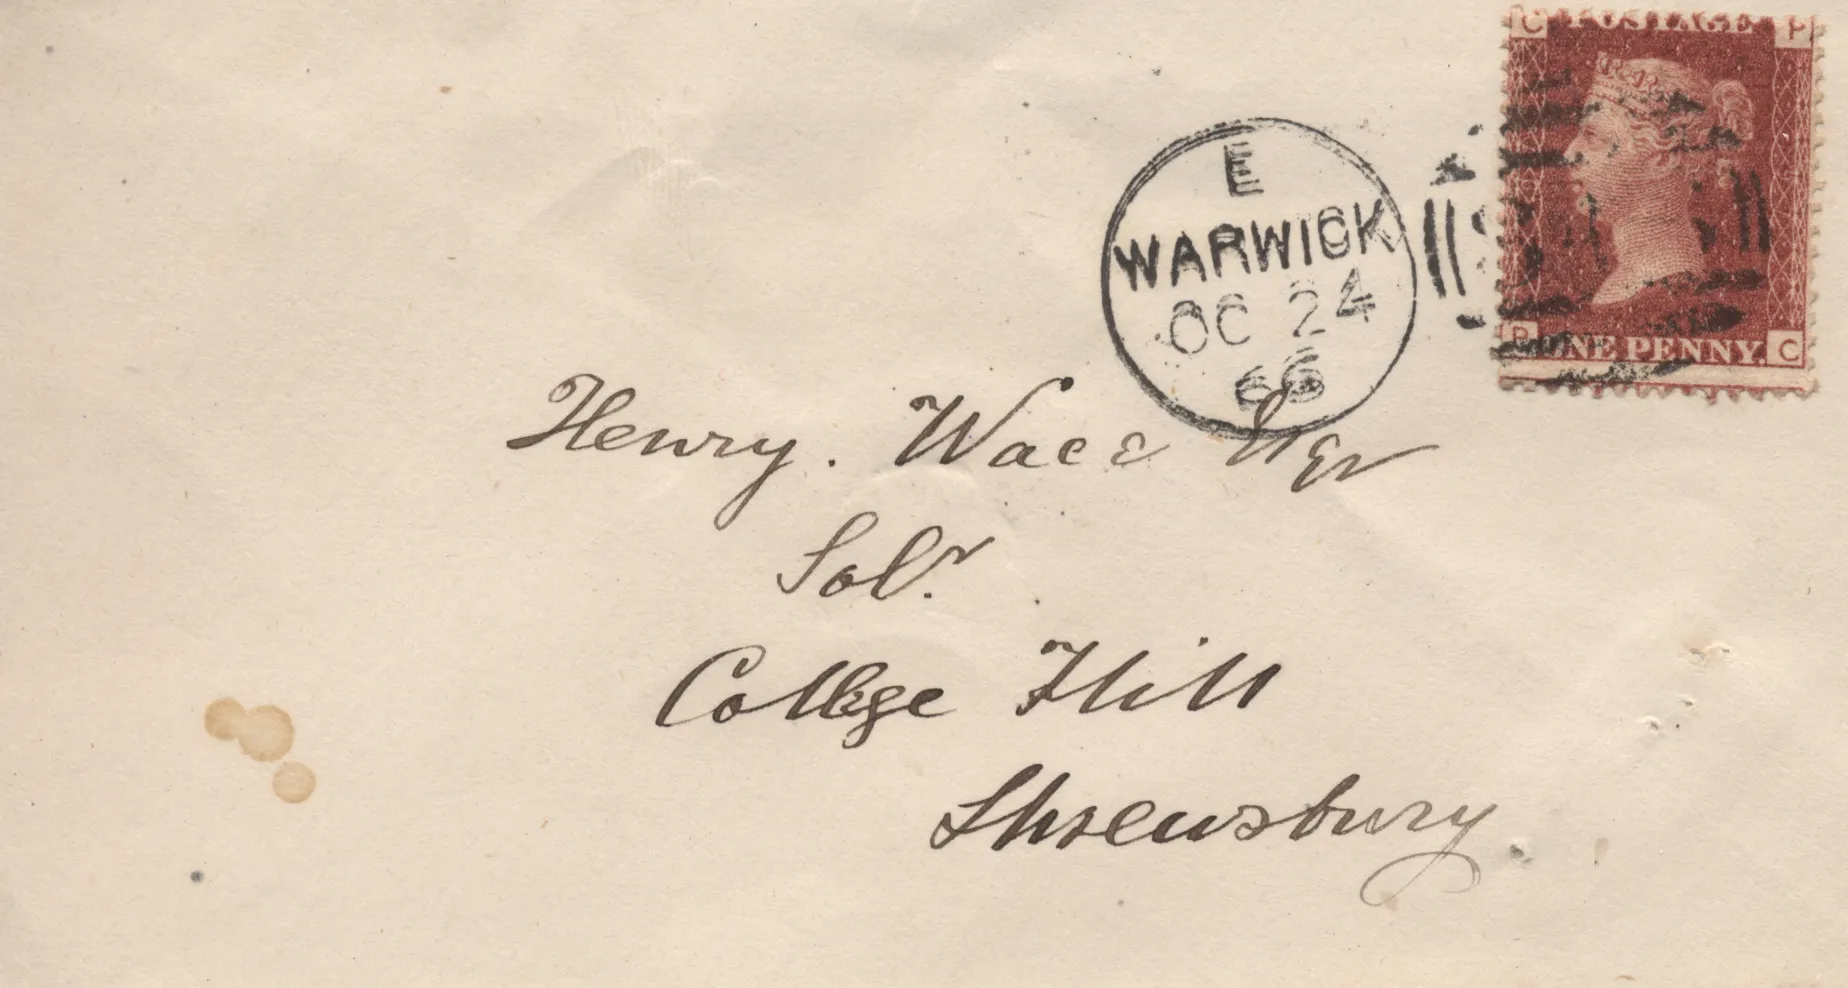 C POSTAGE P
P ONE PENNY. C
E
WARWICK
OC 24
66
Henry. Wace Esqr
Solr.
College Hill
Shrewsbury